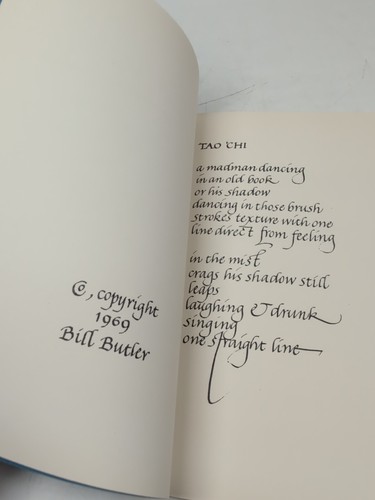 ©, copyright
1969
Bill Butler
TAO CHI
a madman dancing
in an old book
or his shadow
dancing in those brush
strokes texture with one
line direct from feeling
in the mist
crags his shadow still
leaps
laughing & drunk
singing
one straight line